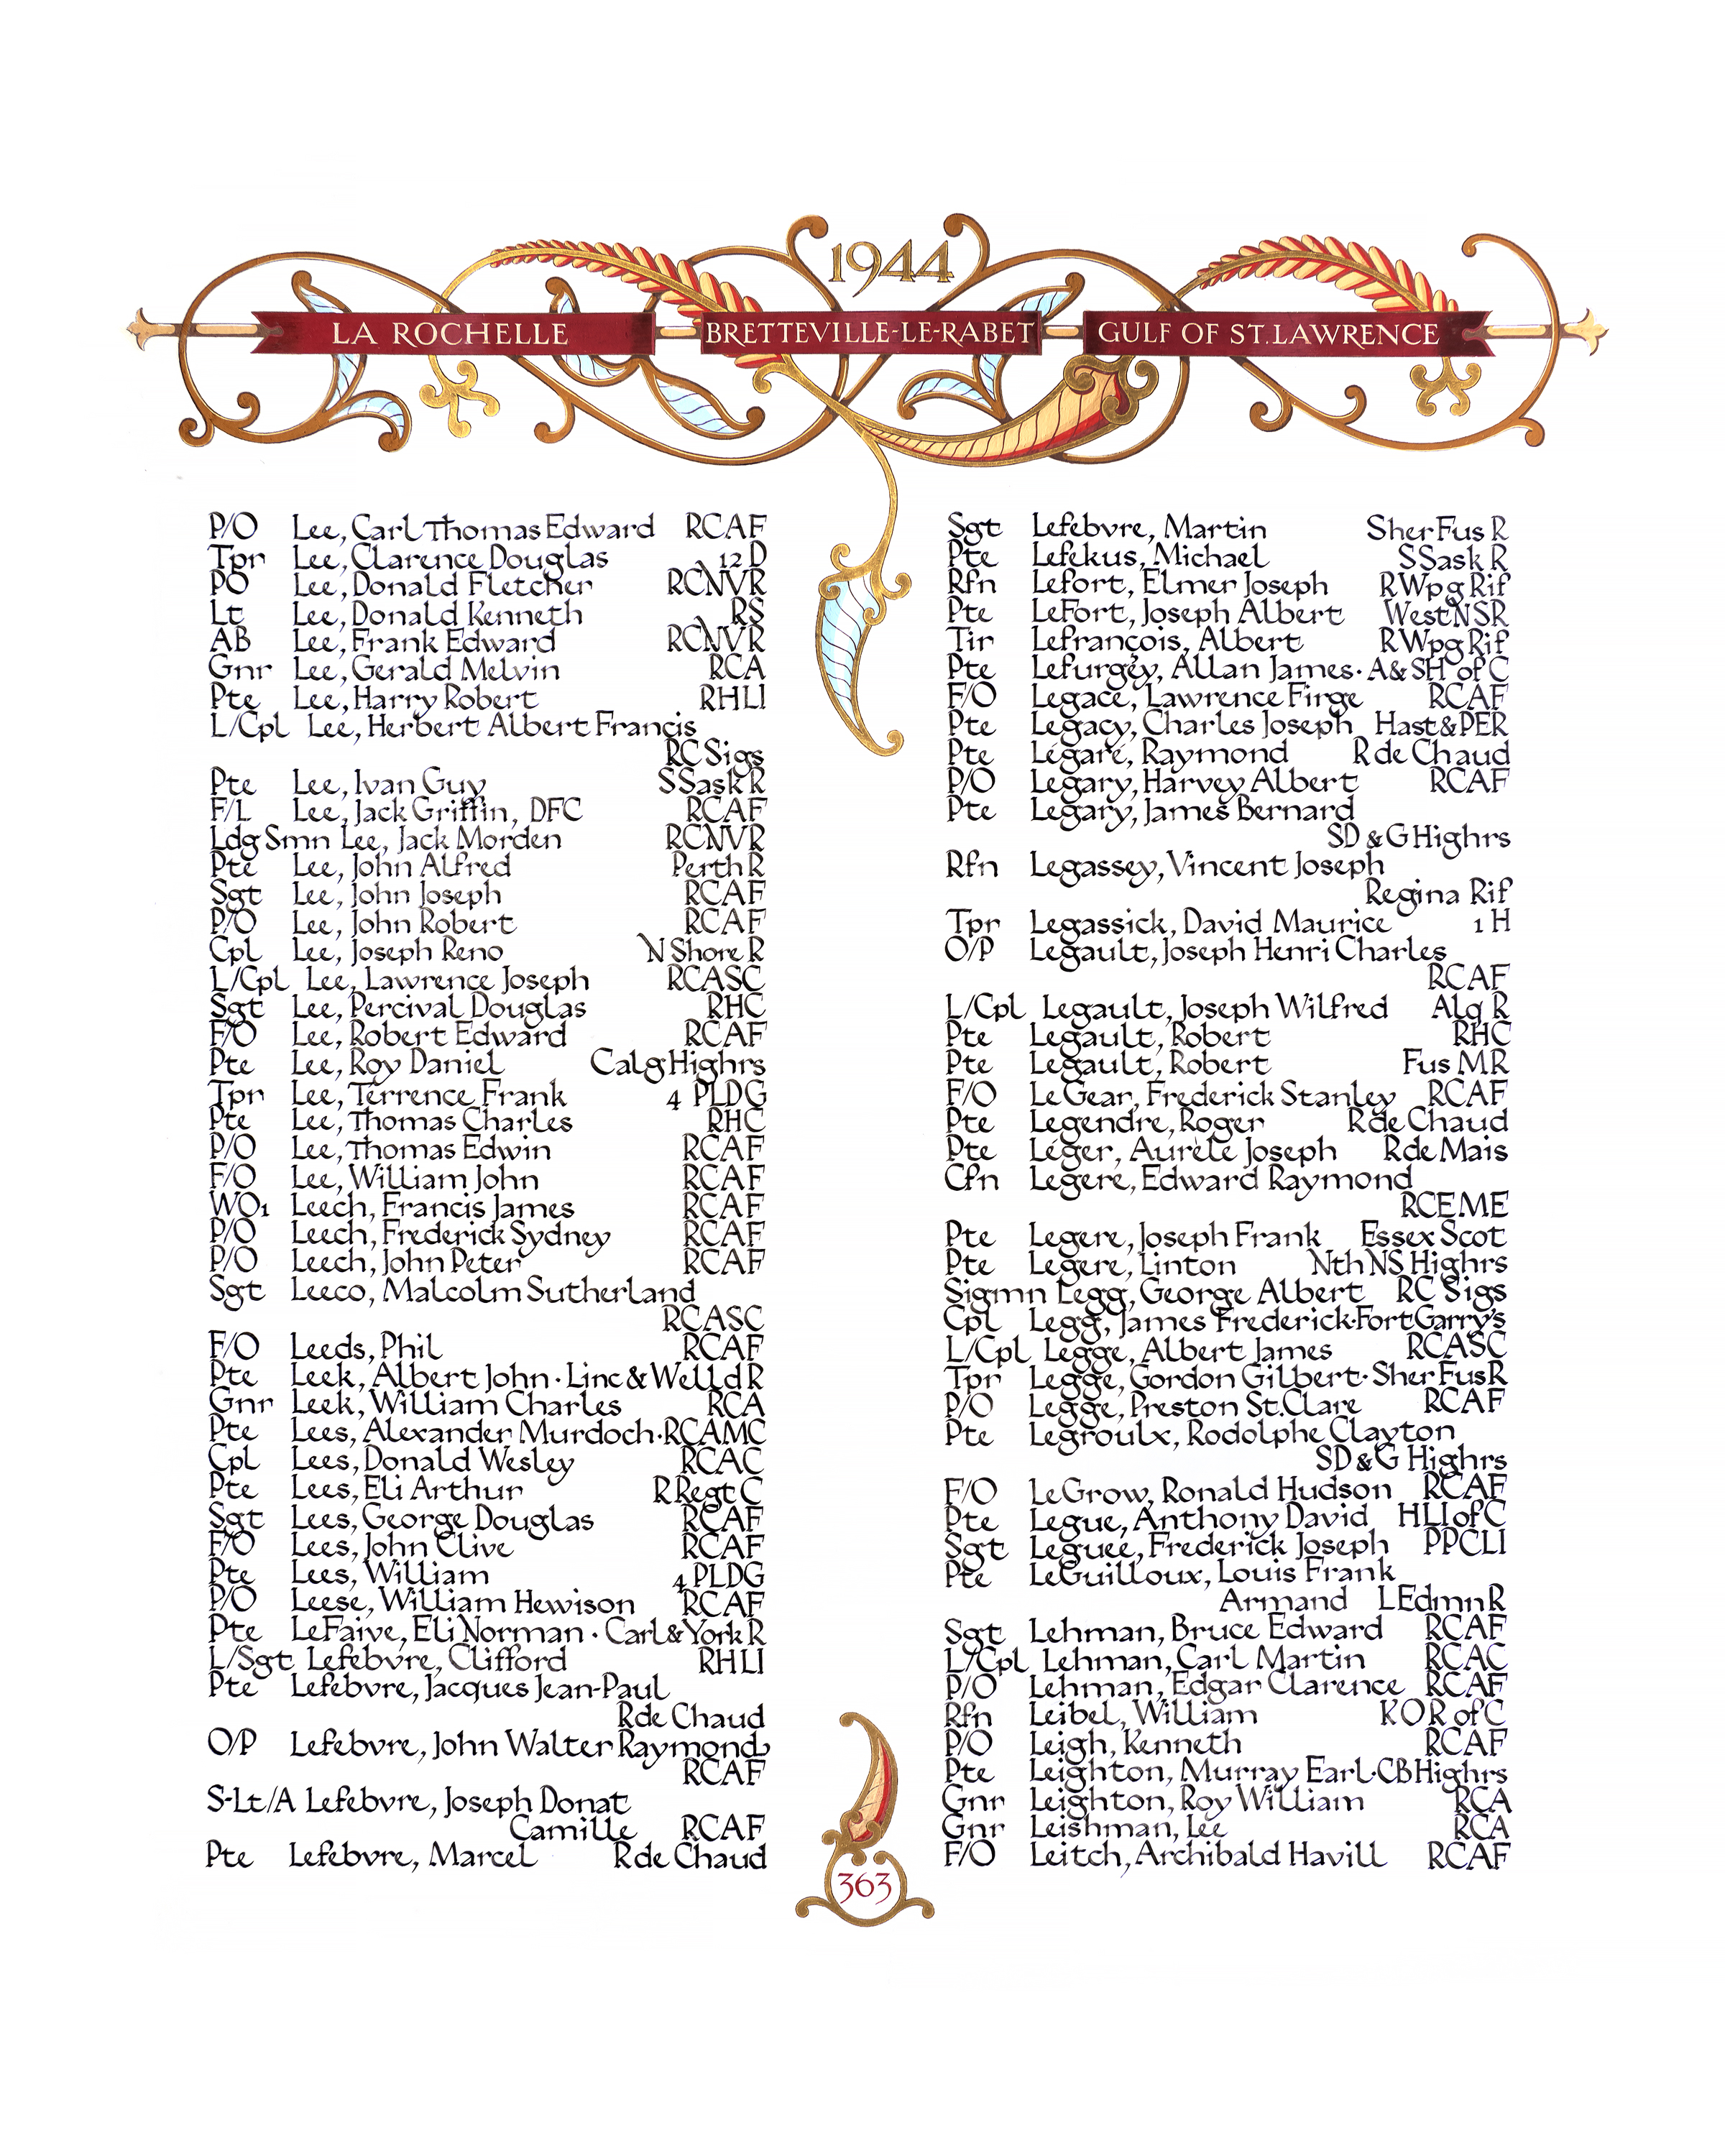 1944
LA ROCHELLE BRETTEVILLE-LE-RABET GULF OF ST. LAWRENCE
P/O Lee, Carl Thomas Edward RCAF
Tpr Lee, Clarence Douglas 12 D
PO Lee, Donald Fletcher RCNVR
Lt Lee, Donald Kenneth RS
AB Lee, Frank Edward RCNVR
Gnr Lee, Gerald Melvin RCA
Pte Lee, Harry Robert RHLI
L/Cpl Lee, Herbert Albert Francis
RC Sigs
Pte Lee, Ivan Guy SSask R
F/L Lee, Jack Griffin, DFC RCAF
Ldg Smn Lee, Jack Morden RCNVR
Pte Lee, John Alfred Perth R
Sgt Lee, John Joseph RCAF
P/O Lee, John Robert RCAF
Cpl Lee, Joseph Reno N Shore R
L/Cpl Lee, Lawrence Joseph RCASC
Sgt Lee, Percival Douglas RHC
F/O Lee, Robert Edward RCAF
Pte Lee, Roy Daniel Calg Highrs
Tpr Lee, Terrence Frank 4 PLDG
Pte Lee, Thomas Charles RHC
P/O Lee, Thomas Edwin RCAF
F/O Lee, William John RCAF
WO1 Leech, Francis James RCAF
P/O Leech, Frederick Sydney RCAF
P/O Leech, John Peter RCAF
Sgt Leeco, Malcolm Sutherland
RCASC
F/O Leeds, Phil RCAF
Pte Leek, Albert John · Linc & Welld R
Gnr Leek, William Charles RCA
Pte Lees, Alexander Murdoch · RCAMC
Cpl Lees, Donald Wesley RCAC
Pte Lees, Eli Arthur R Regt C
Sgt Lees, George Douglas RCAF
F/O Lees, John Clive RCAF
Pte Lees, William 4 PLDG
P/O Leese, William Hewison RCAF
Pte LeFaive, Eli Norman · Carl & York R
L/Sgt Lefebvre, Clifford RHLI
Pte Lefebvre, Jacques Jean-Paul
R de Chaud
O/P Lefebvre, John Walter Raymond
RCAF
S-Lt/A Lefebvre, Joseph Donat
Camille RCAF
Pte Lefebvre, Marcel R de Chaud
Sgt Lefebvre, Martin Sher Fus R
Pte Lefekus, Michael SSask R
Rfn Lefort, Elmer Joseph R Wpg Rif
Pte LeFort, Joseph Albert West NSR
Tir Lefrançois, Albert R Wpg Rif
Pte Lefurgey, Allan James · A & SH of C
F/O Legace, Lawrence Firge RCAF
Pte Legacy, Charles Joseph Hast & PER
Pte Légaré, Raymond R de Chaud
P/O Legary, Harvey Albert RCAF
Pte Legary, James Bernard
SD & G Highrs
Rfn Legassey, Vincent Joseph
Regina Rif
Tpr Legassick, David Maurice 1 H
O/P Legault, Joseph Henri Charles
RCAF
L/Cpl Legault, Joseph Wilfred Alq R
Pte Legault, Robert RHC
Pte Legault, Robert Fus MR
F/O LeGear, Frederick Stanley RCAF
Pte Legendre, Roger R de Chaud
Pte Léger, Aurèle Joseph R de Mais
Cfn Legere, Edward Raymond
RCEME
Pte Legere, Joseph Frank Essex Scot
Pte Legere, Linton Nth NS Highrs
Sigmn Legg, George Albert RC Sigs
Cpl Legg, James Frederick · Fort Garry's
L/Cpl Legge, Albert James RCASC
Tpr Legge, Gordon Gilbert · Sher Fus R
P/O Legge, Preston St. Clare RCAF
Pte Legroulx, Rodolphe Clayton
SD & G Highrs
F/O LeGrow, Ronald Hudson RCAF
Pte Legue, Anthony David HLI of C
Sgt Leguee, Frederick Joseph PPCLI
Pte LeGuilloux, Louis Frank
Armand L Edmn R
Sgt Lehman, Bruce Edward RCAF
L/Cpl Lehman, Carl Martin RCAC
P/O Lehman, Edgar Clarence RCAF
Rfn Leibel, William KOR of C
P/O Leigh, Kenneth RCAF
Pte Leighton, Murray Earl · CB Highrs
Gnr Leighton, Roy William RCA
Gnr Leishman, Lee RCA
F/O Leitch, Archibald Havill RCAF
363